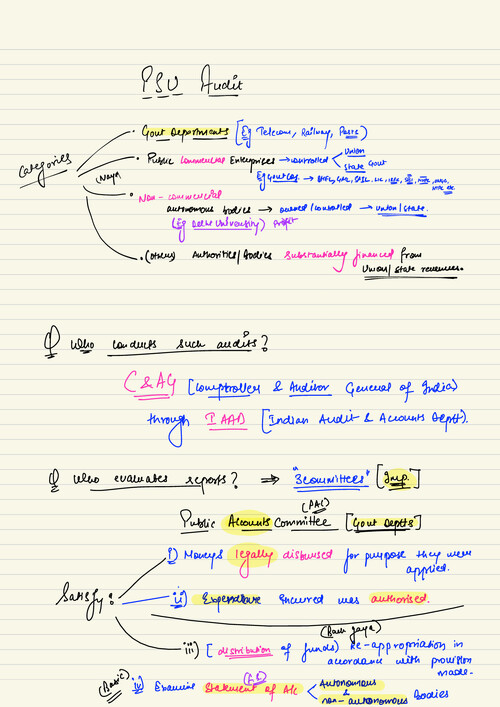 PSU Audit
Categories
(Naya)
• Govt Departments [Eg Telecom, Railway, Posts]
• Public commercial Enterprises → controlled < Union
State Govt
Eg Govt Cos → BHEL, GAIL, SAIL, LIC,
NTPC etc
• Non-commercial
autonomous bodies → owned/controlled → Union/State.
(Eg Delhi University)
• (others) Authorities/Bodies substantially financed from
Union/State revenues.
Q Who conducts such audits?
C&AG [Comptroller & Auditor General of India)
through IAAD [Indian Audit & Accounts Deptt).
Q Who evaluates reports? ⇒ "3 committees" [Imp.]
(PAC)
Public Accounts Committee [Govt Deptts]
Satisfy:
i) Moneys legally disbursed for purpose they were
applied.
ii) Expenditure incurred was authorised.
iii) [distribution of funds) Re-appropriation in
accordance with provision
made.
(Basic) iv) Examine Statement of A/c < Autonomous
&
non-autonomous bodies